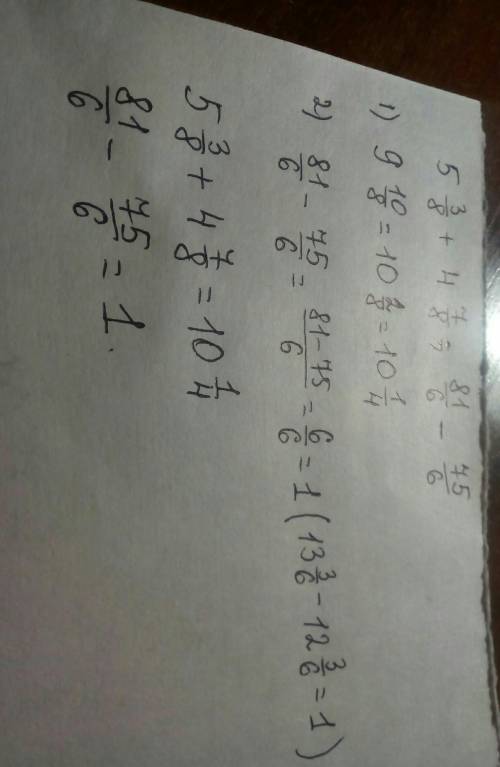 5 3/8 + 4 7/8; 81/6 - 75/6
1) 9 10/8 = 10 2/8 = 10 1/4
2) 81/6 - 75/6 = (81-75)/6 = 6/6 = 1 (13 3/6 - 12 3/6 = 1)
5 3/8 + 4 7/8 = 10 1/4
81/6 - 75/6 = 1.